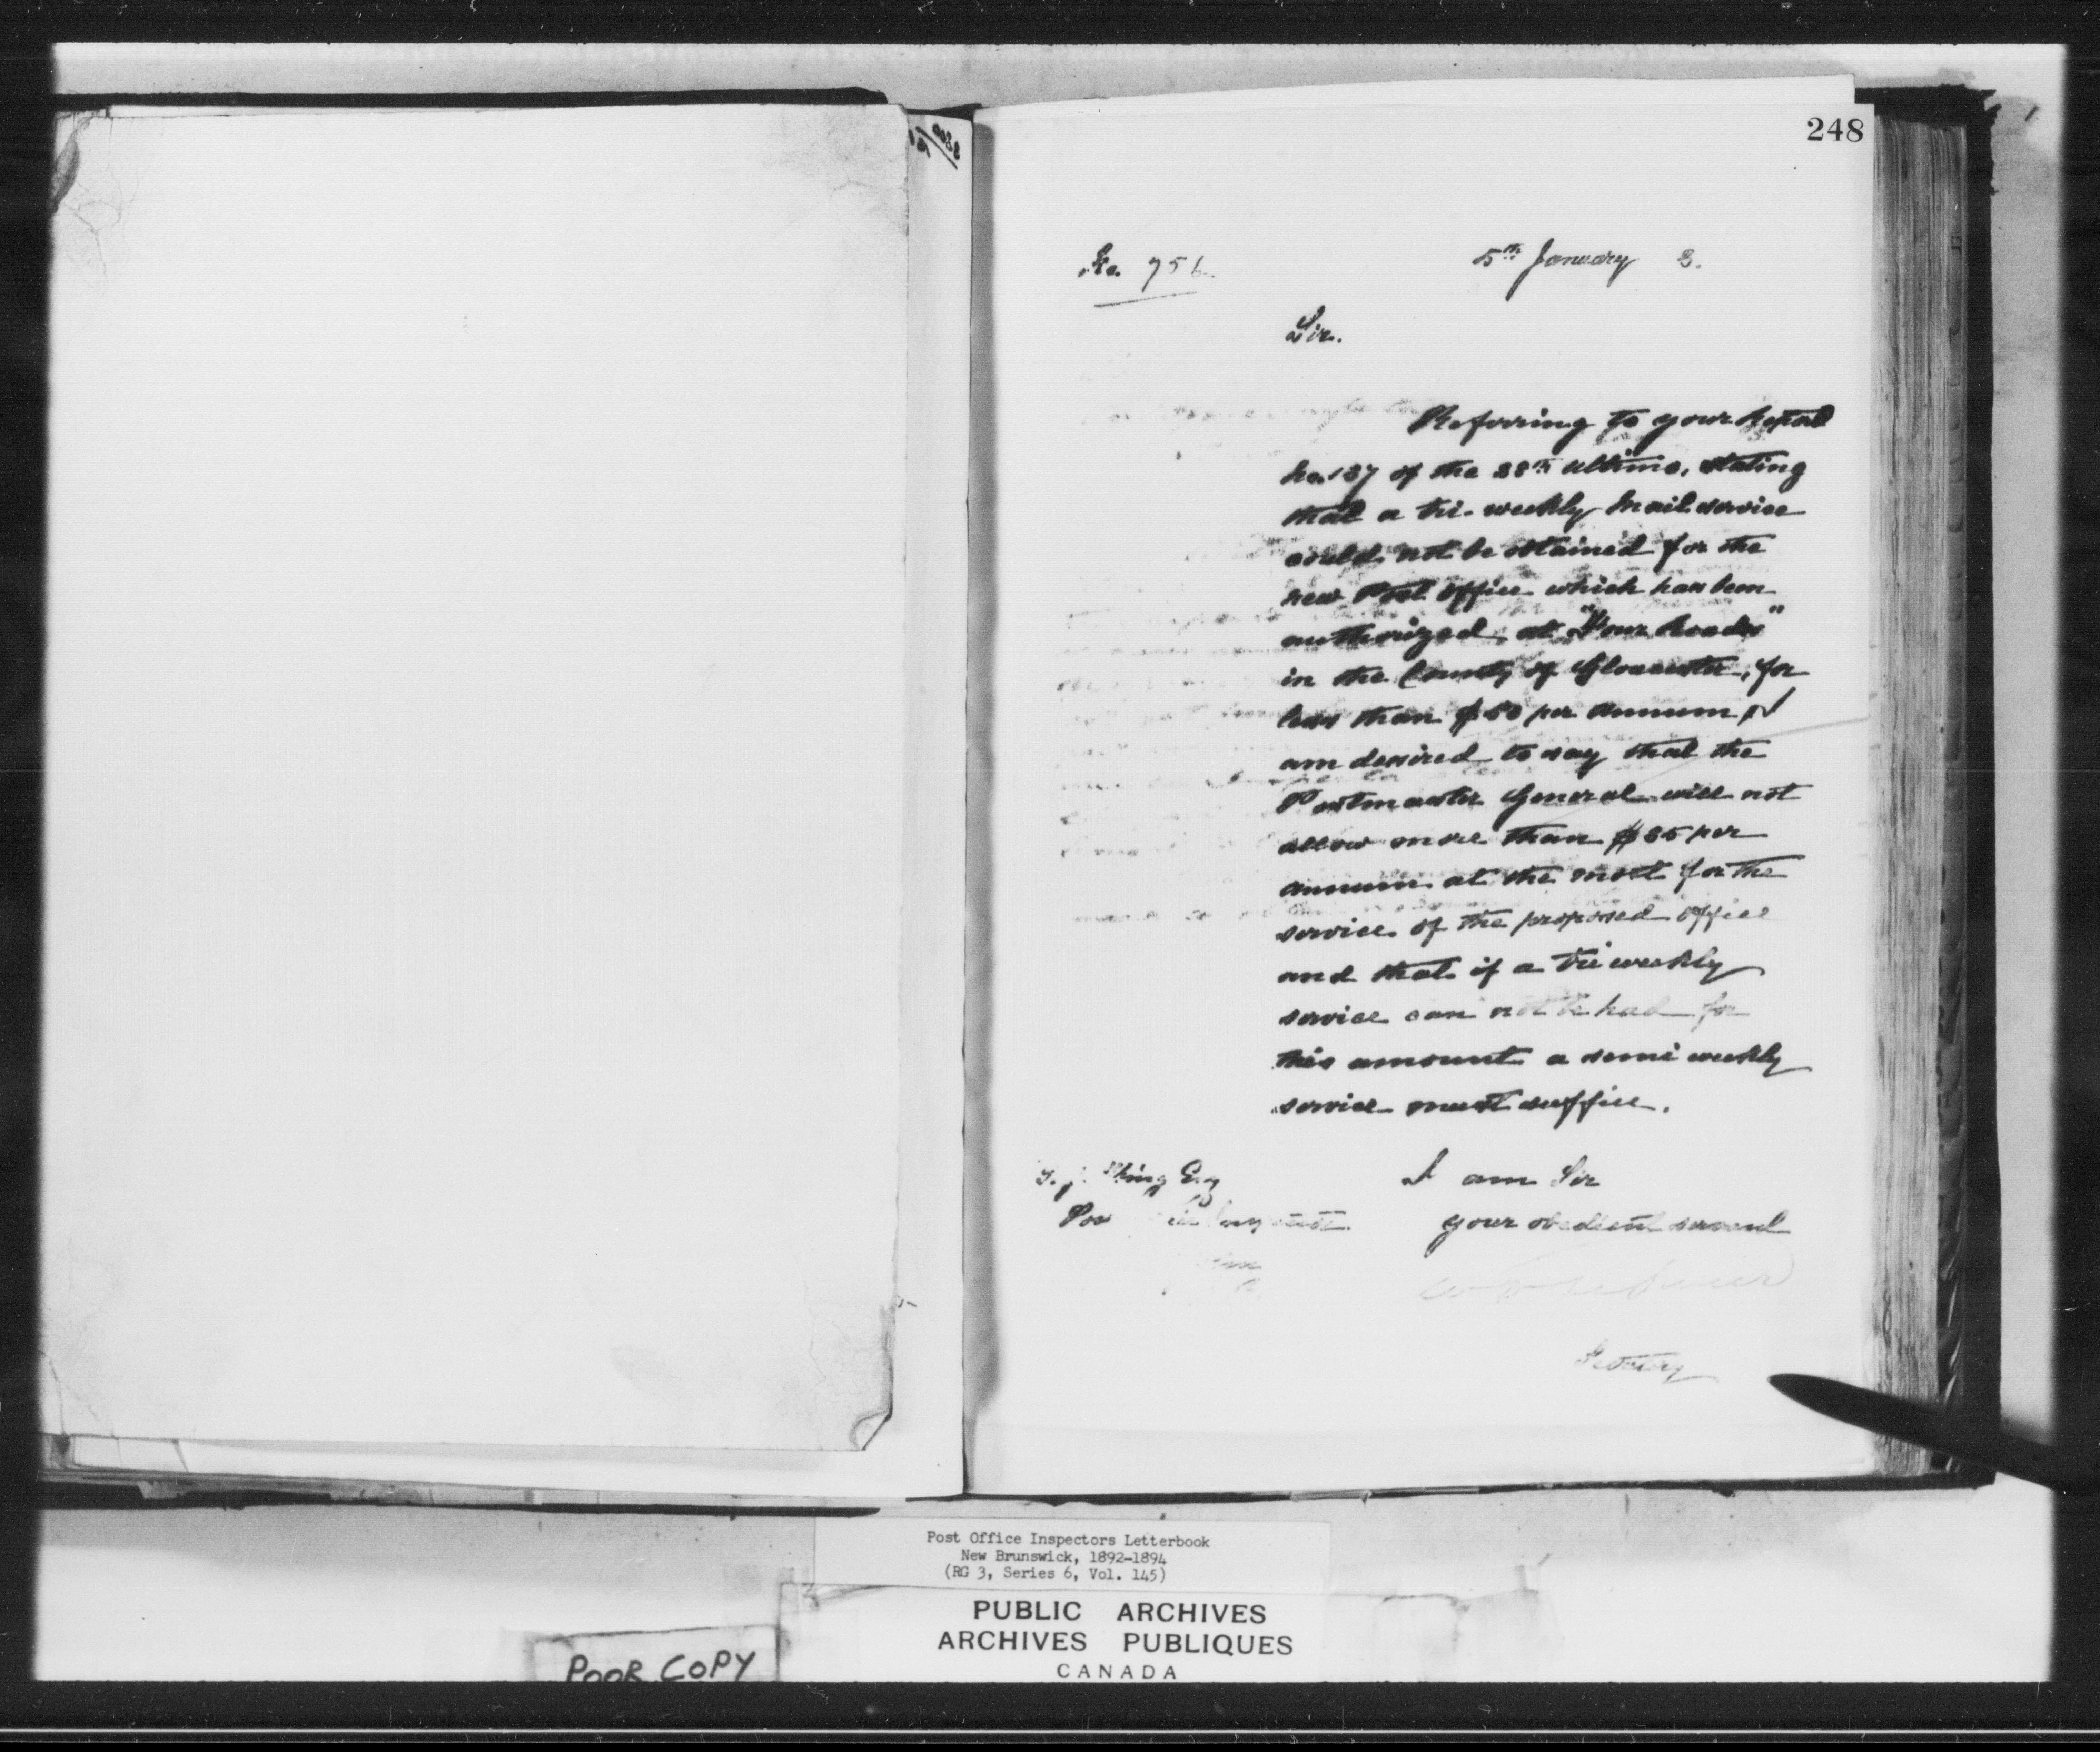 248
No. 756
5th January 3.
Sir.
Referring to your Report
No. 137 of the 28th ultimo, stating
that a tri-weekly Mail service
could not be obtained for the
new Post Office which has been
authorized at "Four Roads"
in the County of Gloucester, for
less than $50 per annum, I
am desired to say that the
Postmaster General will not
allow more than $35 per
annum at the most for the
service of the proposed office
and that if a tri weekly
service can not be had for
this amount a semi weekly
service must suffice.
I am Sir
your obedient servant
King Esq
Secretary
Post Office Inspectors Letterbook
New Brunswick, 1892-1894
(RG 3, Series 6, Vol. 145)
PUBLIC ARCHIVES
ARCHIVES PUBLIQUES
CANADA
POOR COPY